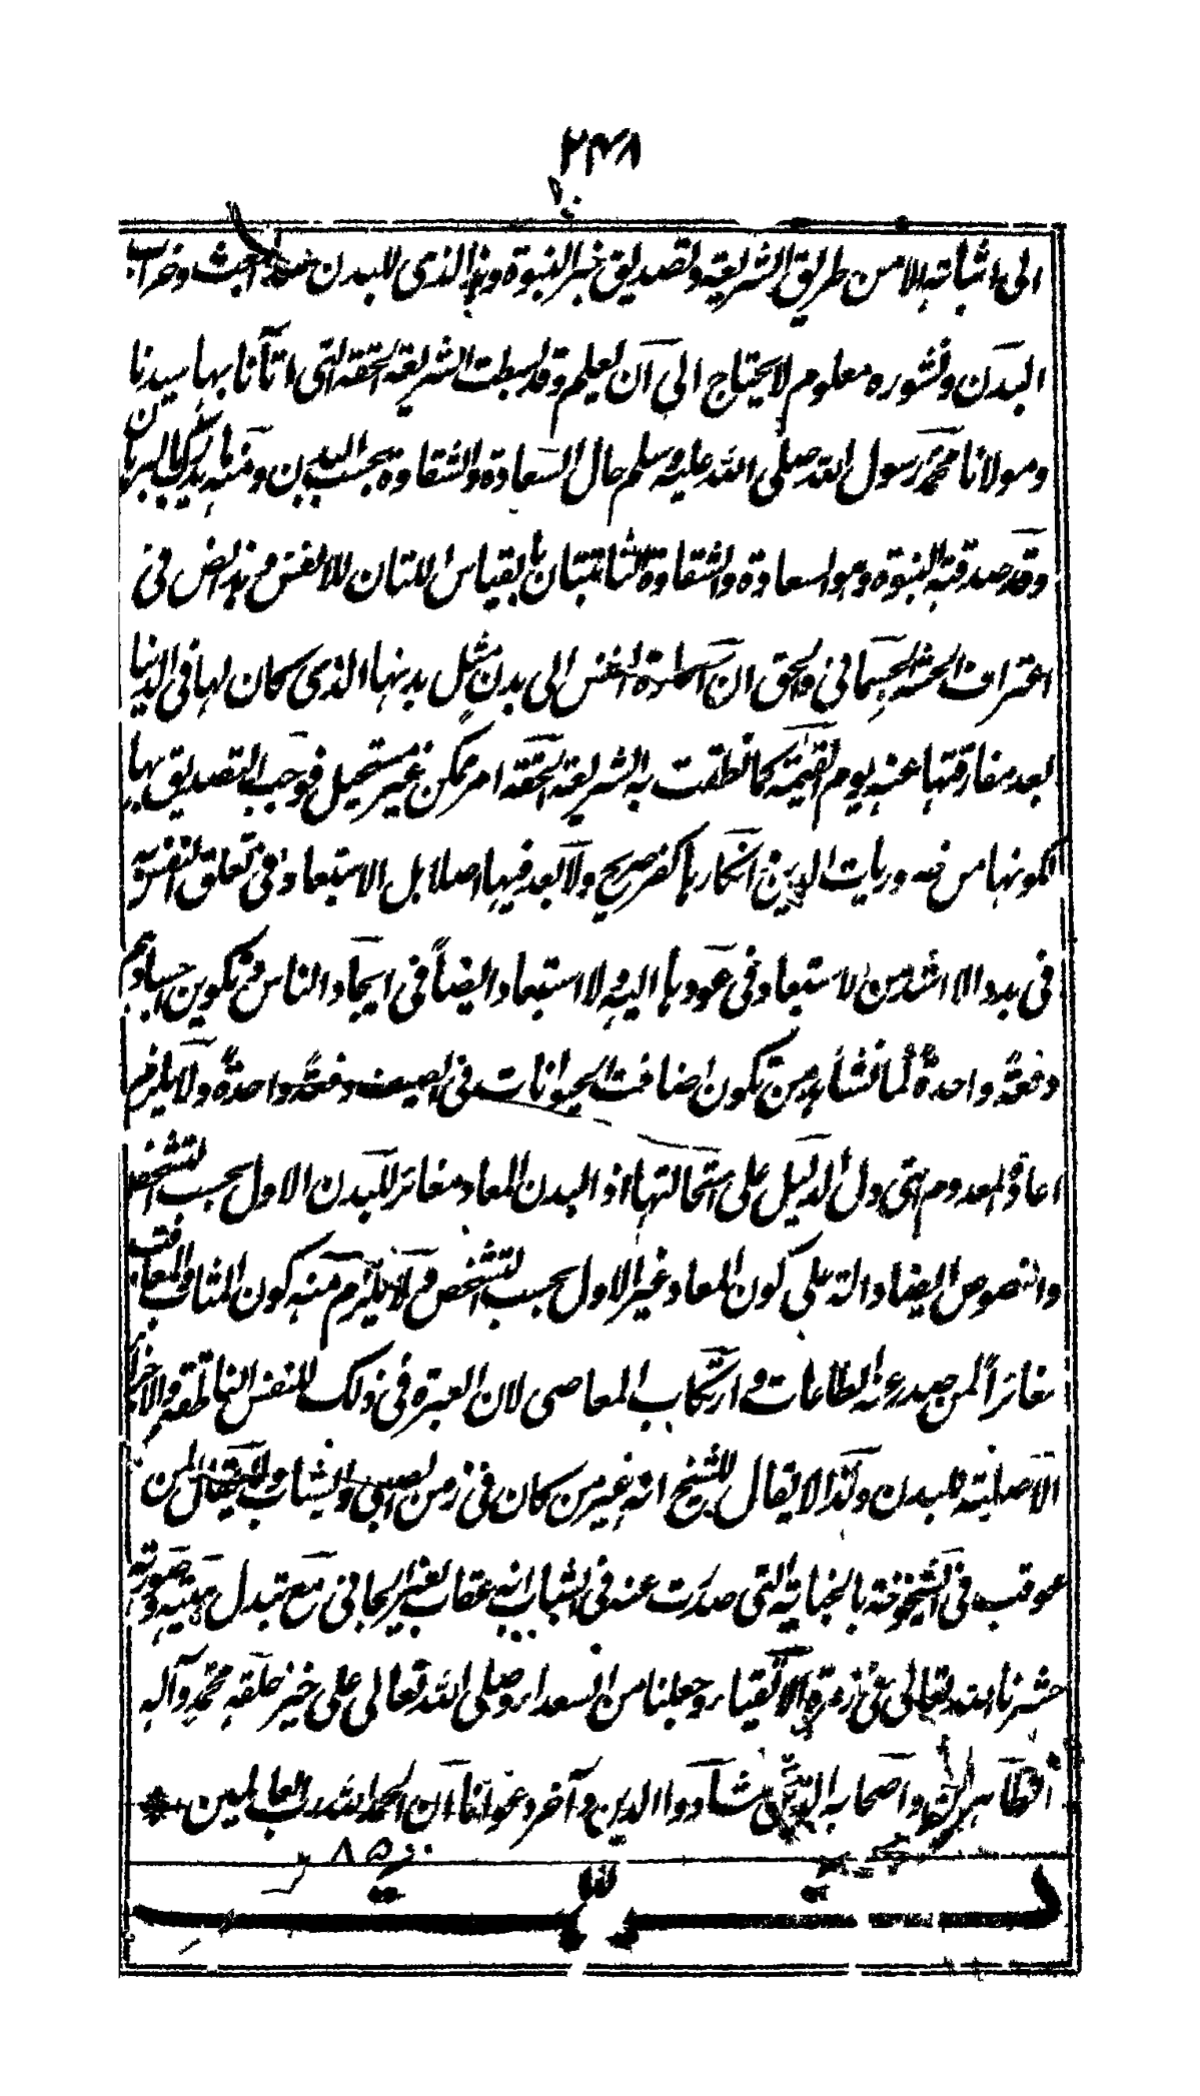 ٢٣٨
الى اثباته الا من طريق الشريعة وتصديق خبر النبوة وهذا الذى للبدن عند البعث وخراب
البدن ونشوره معلوم لا يحتاج الى ان يعلم وقد بسطت الشريعة الحقة التى اتانا بها سيدنا
ومولانا محمد رسول الله صلى الله عليه وسلم حال السعادة والشقاوة بحسب البدن ومنه ما يدرك بالبرهان
وقد صدقته النبوة وهو السعادة والشقاوة الثابتتان بالقياس اللتان للانفس وهذا نص فى
اعتراف الحشر الجسمانى والحق ان اعادة النفس الى بدن مثل بدنها الذى كان لها فى الدنيا
بعد مفارقتها عنه يوم القيمة كما نطقت به الشريعة الحقة امر ممكن غير مستحيل فوجب التصديق بها
لكونها من ضروريات الدين وانكارها كفر صريح ولا بعد فيها اصلا بل الاستبعاد فى تعلق النفس به
فى بدو الامر اشد من الاستبعاد فى عودها اليه ولا استبعاد ايضاً فى ايجاد الناس وتكوين اجسادهم
دفعةً واحدةً لما نشاهد من تكون اصناف الحيوانات فى الصيف دفعةً واحدةً ولا يلزم
اعادة المعدوم التى دل الدليل على استحالتها اذ البدن المعاد مغائر للبدن الاول بحسب التشخص
والنصوص ايضا دالة على كون المعاد غير الاول بحسب التشخص ولا يلزم منه كون المثاب والمعاقب
مغائراً لمن صدر عنه الطاعات وارتكاب المعاصى لان العبرة فى ذلك للنفس الناطقة والاجزاء
الاصلية للبدن ولذا لا يقال للشيخ انه غير من كان فى زمن الصبى والشباب ولا يقال لمن
عوقب فى الشيخوخة بالجناية التى صدرت عنه فى الشباب انه عقاب لغير الجانى مع تبدل هيئته وصورته
حشرنا الله تعالى فى زمرة الاتقياء وجعلنا من السعداء وصلى الله تعالى على خير خلقه محمد وآله
الطاهرين واصحابه الذين شادوا الدين وآخر دعوانا ان الحمد لله رب العالمين